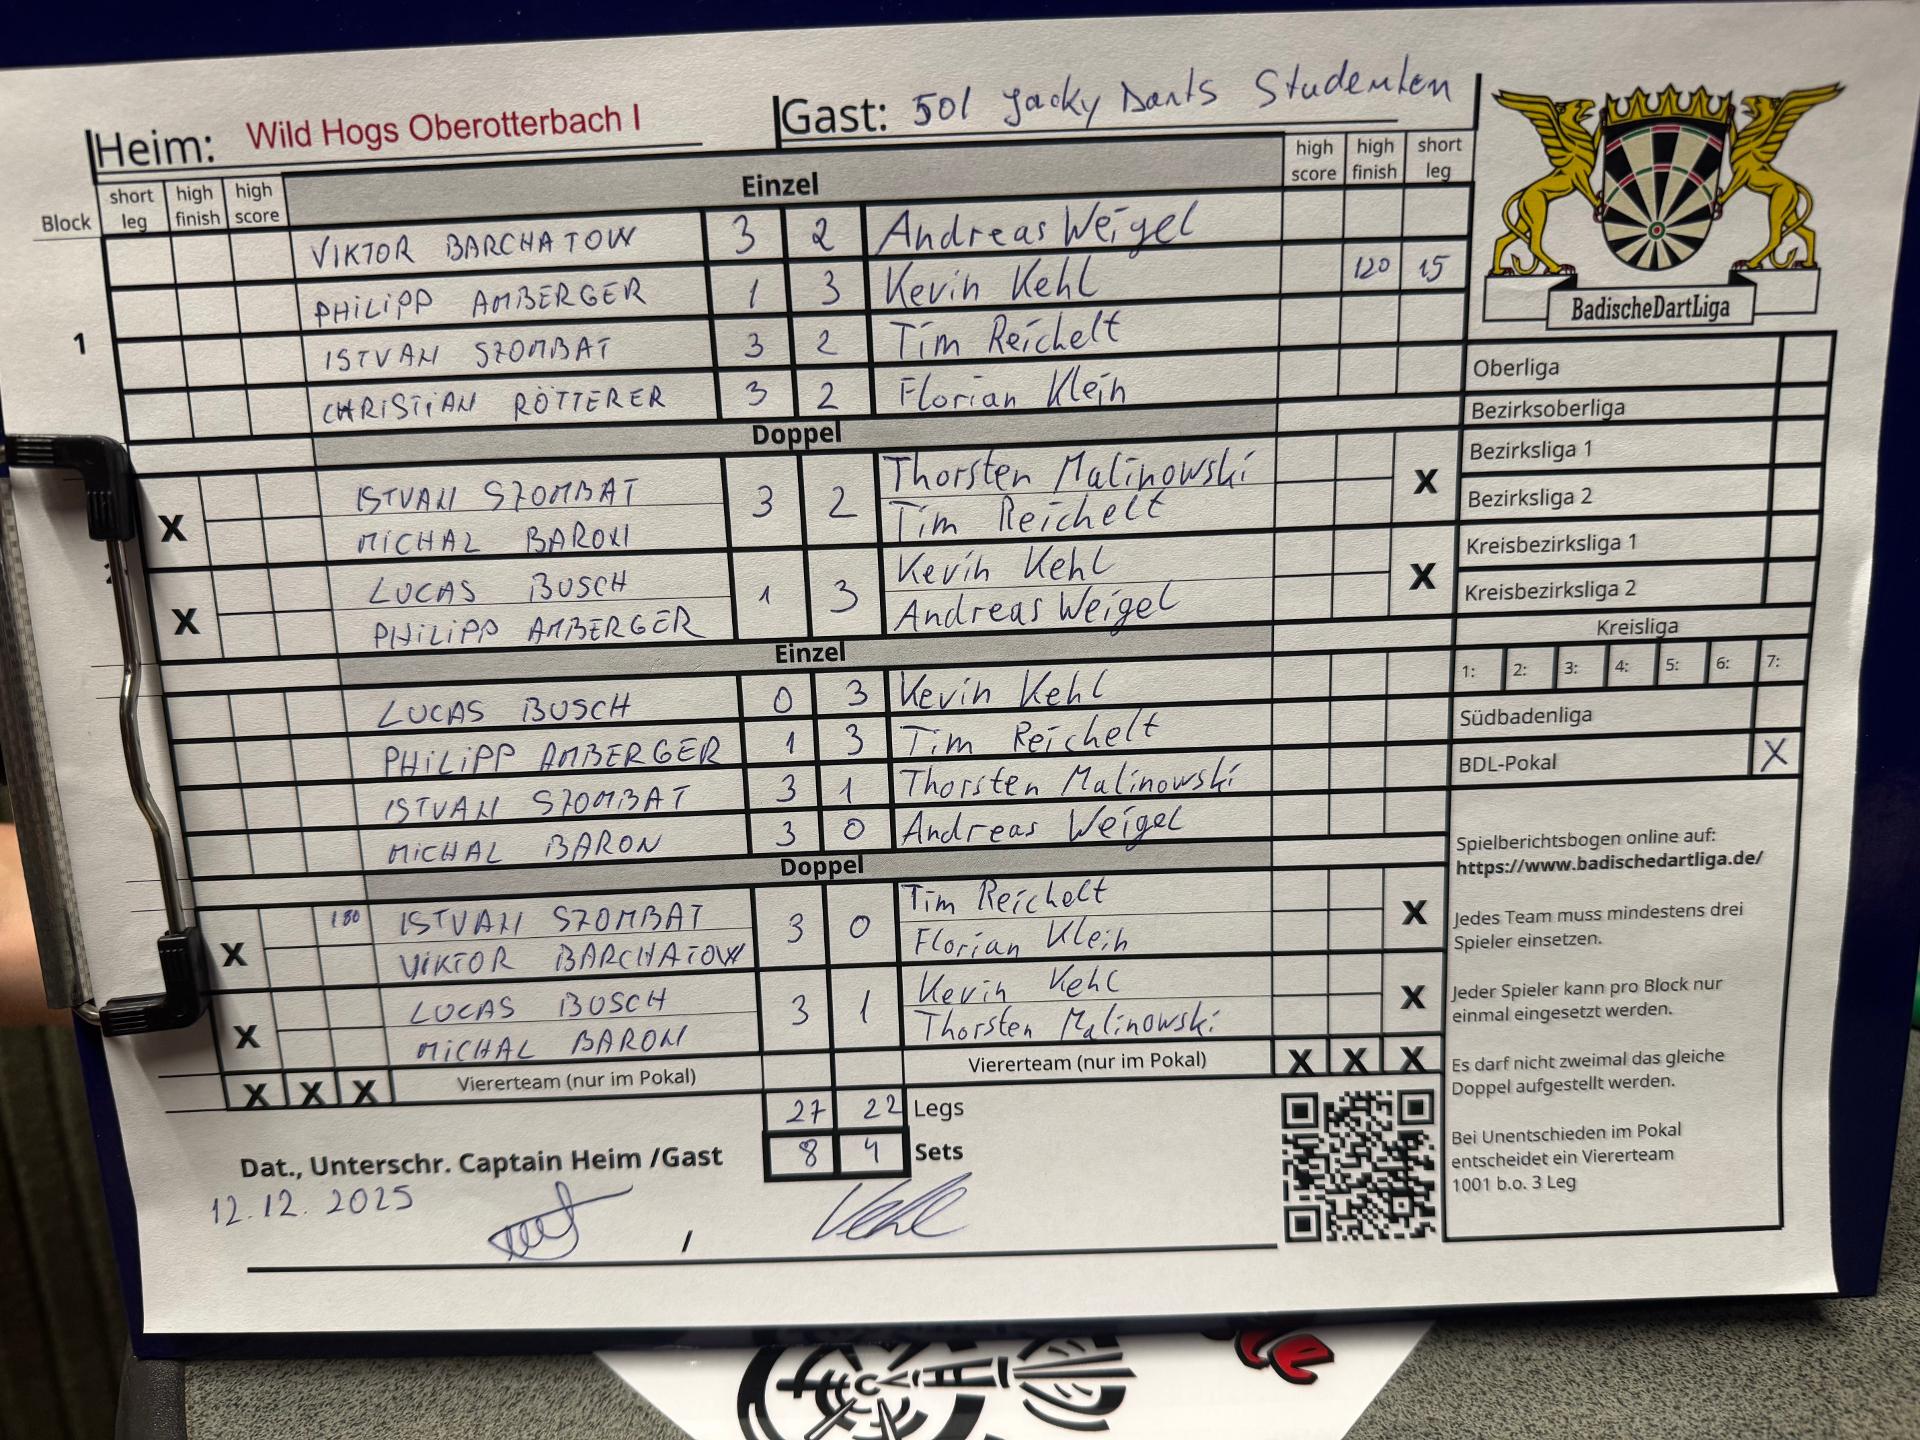 Heim: Wild Hogs Oberotterbach I Gast: 501 Jacky Darts Studenten
Block short leg high finish high score Einzel high score high finish short leg
VIKTOR BARCHATOW 3 2 Andreas Weigel
PHILIPP AMBERGER 1 3 Kevin Kehl 120 15
1
ISTVAN SZOMBAT 3 2 Tim Reichelt
CHRISTIAN RÖTTERER 3 2 Florian Klein
Doppel
ISTVAN SZOMBAT Thorsten Malinowski
X 3 2 X
MICHAL BARON Tim Reichelt
LUCAS BUSCH Kevin Kehl
X 1 3 X
PHILIPP AMBERGER Andreas Weigel
Einzel
LUCAS BUSCH 0 3 Kevin Kehl
PHILIPP AMBERGER 1 3 Tim Reichelt
ISTVAN SZOMBAT 3 1 Thorsten Malinowski
MICHAL BARON 3 0 Andreas Weigel
Doppel
180 ISTVAN SZOMBAT Tim Reichelt
X 3 0 X
VIKTOR BARCHATOW Florian Klein
LUCAS BUSCH Kevin Kehl
X 3 1 X
MICHAL BARON Thorsten Malinowski
X X X Viererteam (nur im Pokal) Viererteam (nur im Pokal) X X X
27 22 Legs
8 4 Sets
Dat., Unterschr. Captain Heim /Gast
12.12.2025
/ Kehl
BadischeDartLiga
Oberliga
Bezirksoberliga
Bezirksliga 1
Bezirksliga 2
Kreisbezirksliga 1
Kreisbezirksliga 2
Kreisliga
1: 2: 3: 4: 5: 6: 7:
Südbadenliga
BDL-Pokal X
Spielberichtsbogen online auf:
https://www.badischedartliga.de/
Jedes Team muss mindestens drei
Spieler einsetzen.
Jeder Spieler kann pro Block nur
einmal eingesetzt werden.
Es darf nicht zweimal das gleiche
Doppel aufgestellt werden.
Bei Unentschieden im Pokal
entscheidet ein Viererteam
1001 b.o. 3 Leg